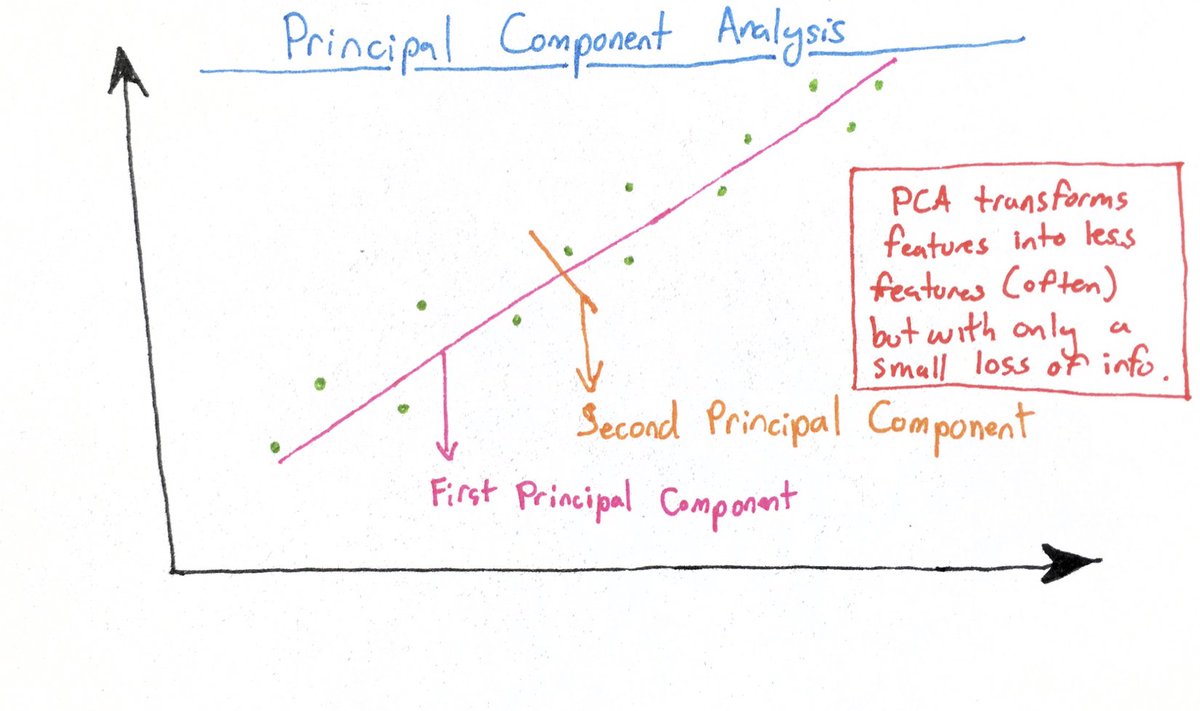 Principal Component Analysis
PCA transforms
features into less
features (often)
but with only a
small loss of info.
Second Principal Component
First Principal Component